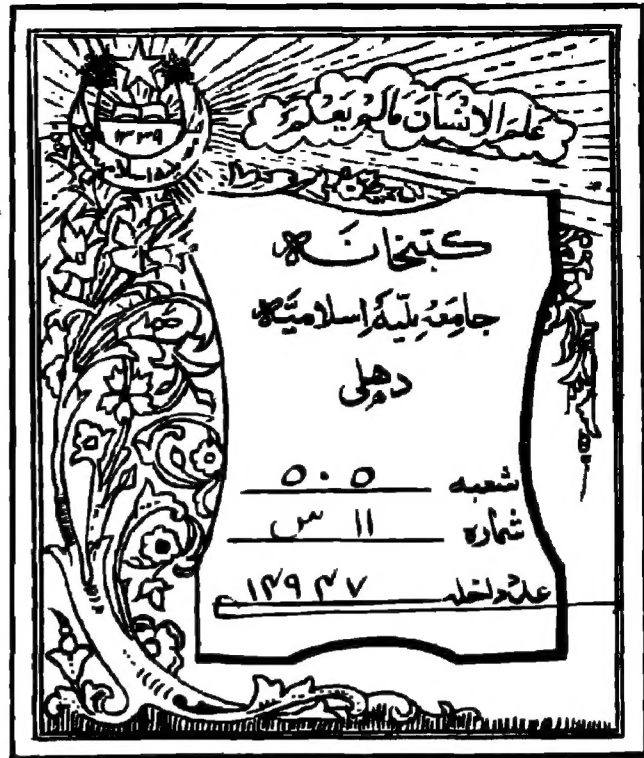 علم الانسان مالم يعلم
١٣٣٩
كتبخانه
جامعه ملّيه اسلاميّه
دهلی
شعبه ٥٠٥
شماره ١١ س
عدد داخله ١٢٩٤٧